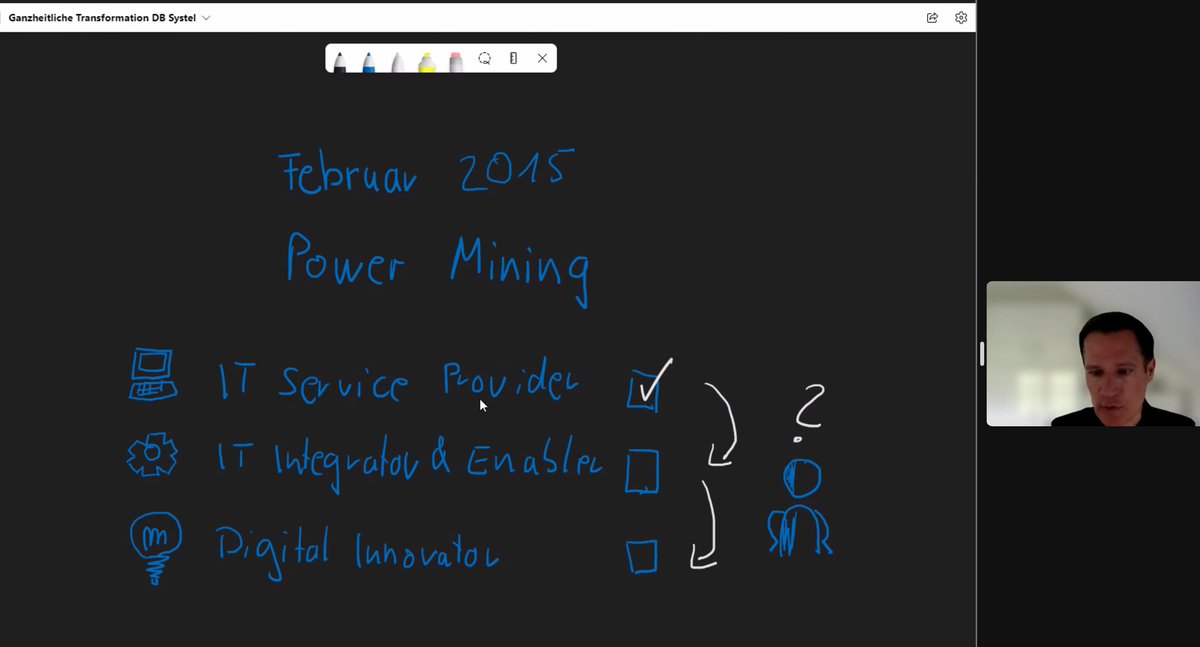 Ganzheitliche Transformation DB Systel
Februar 2015
Power Mining
IT Service Provider
IT Integrator & Enabler
Digital Innovator
?